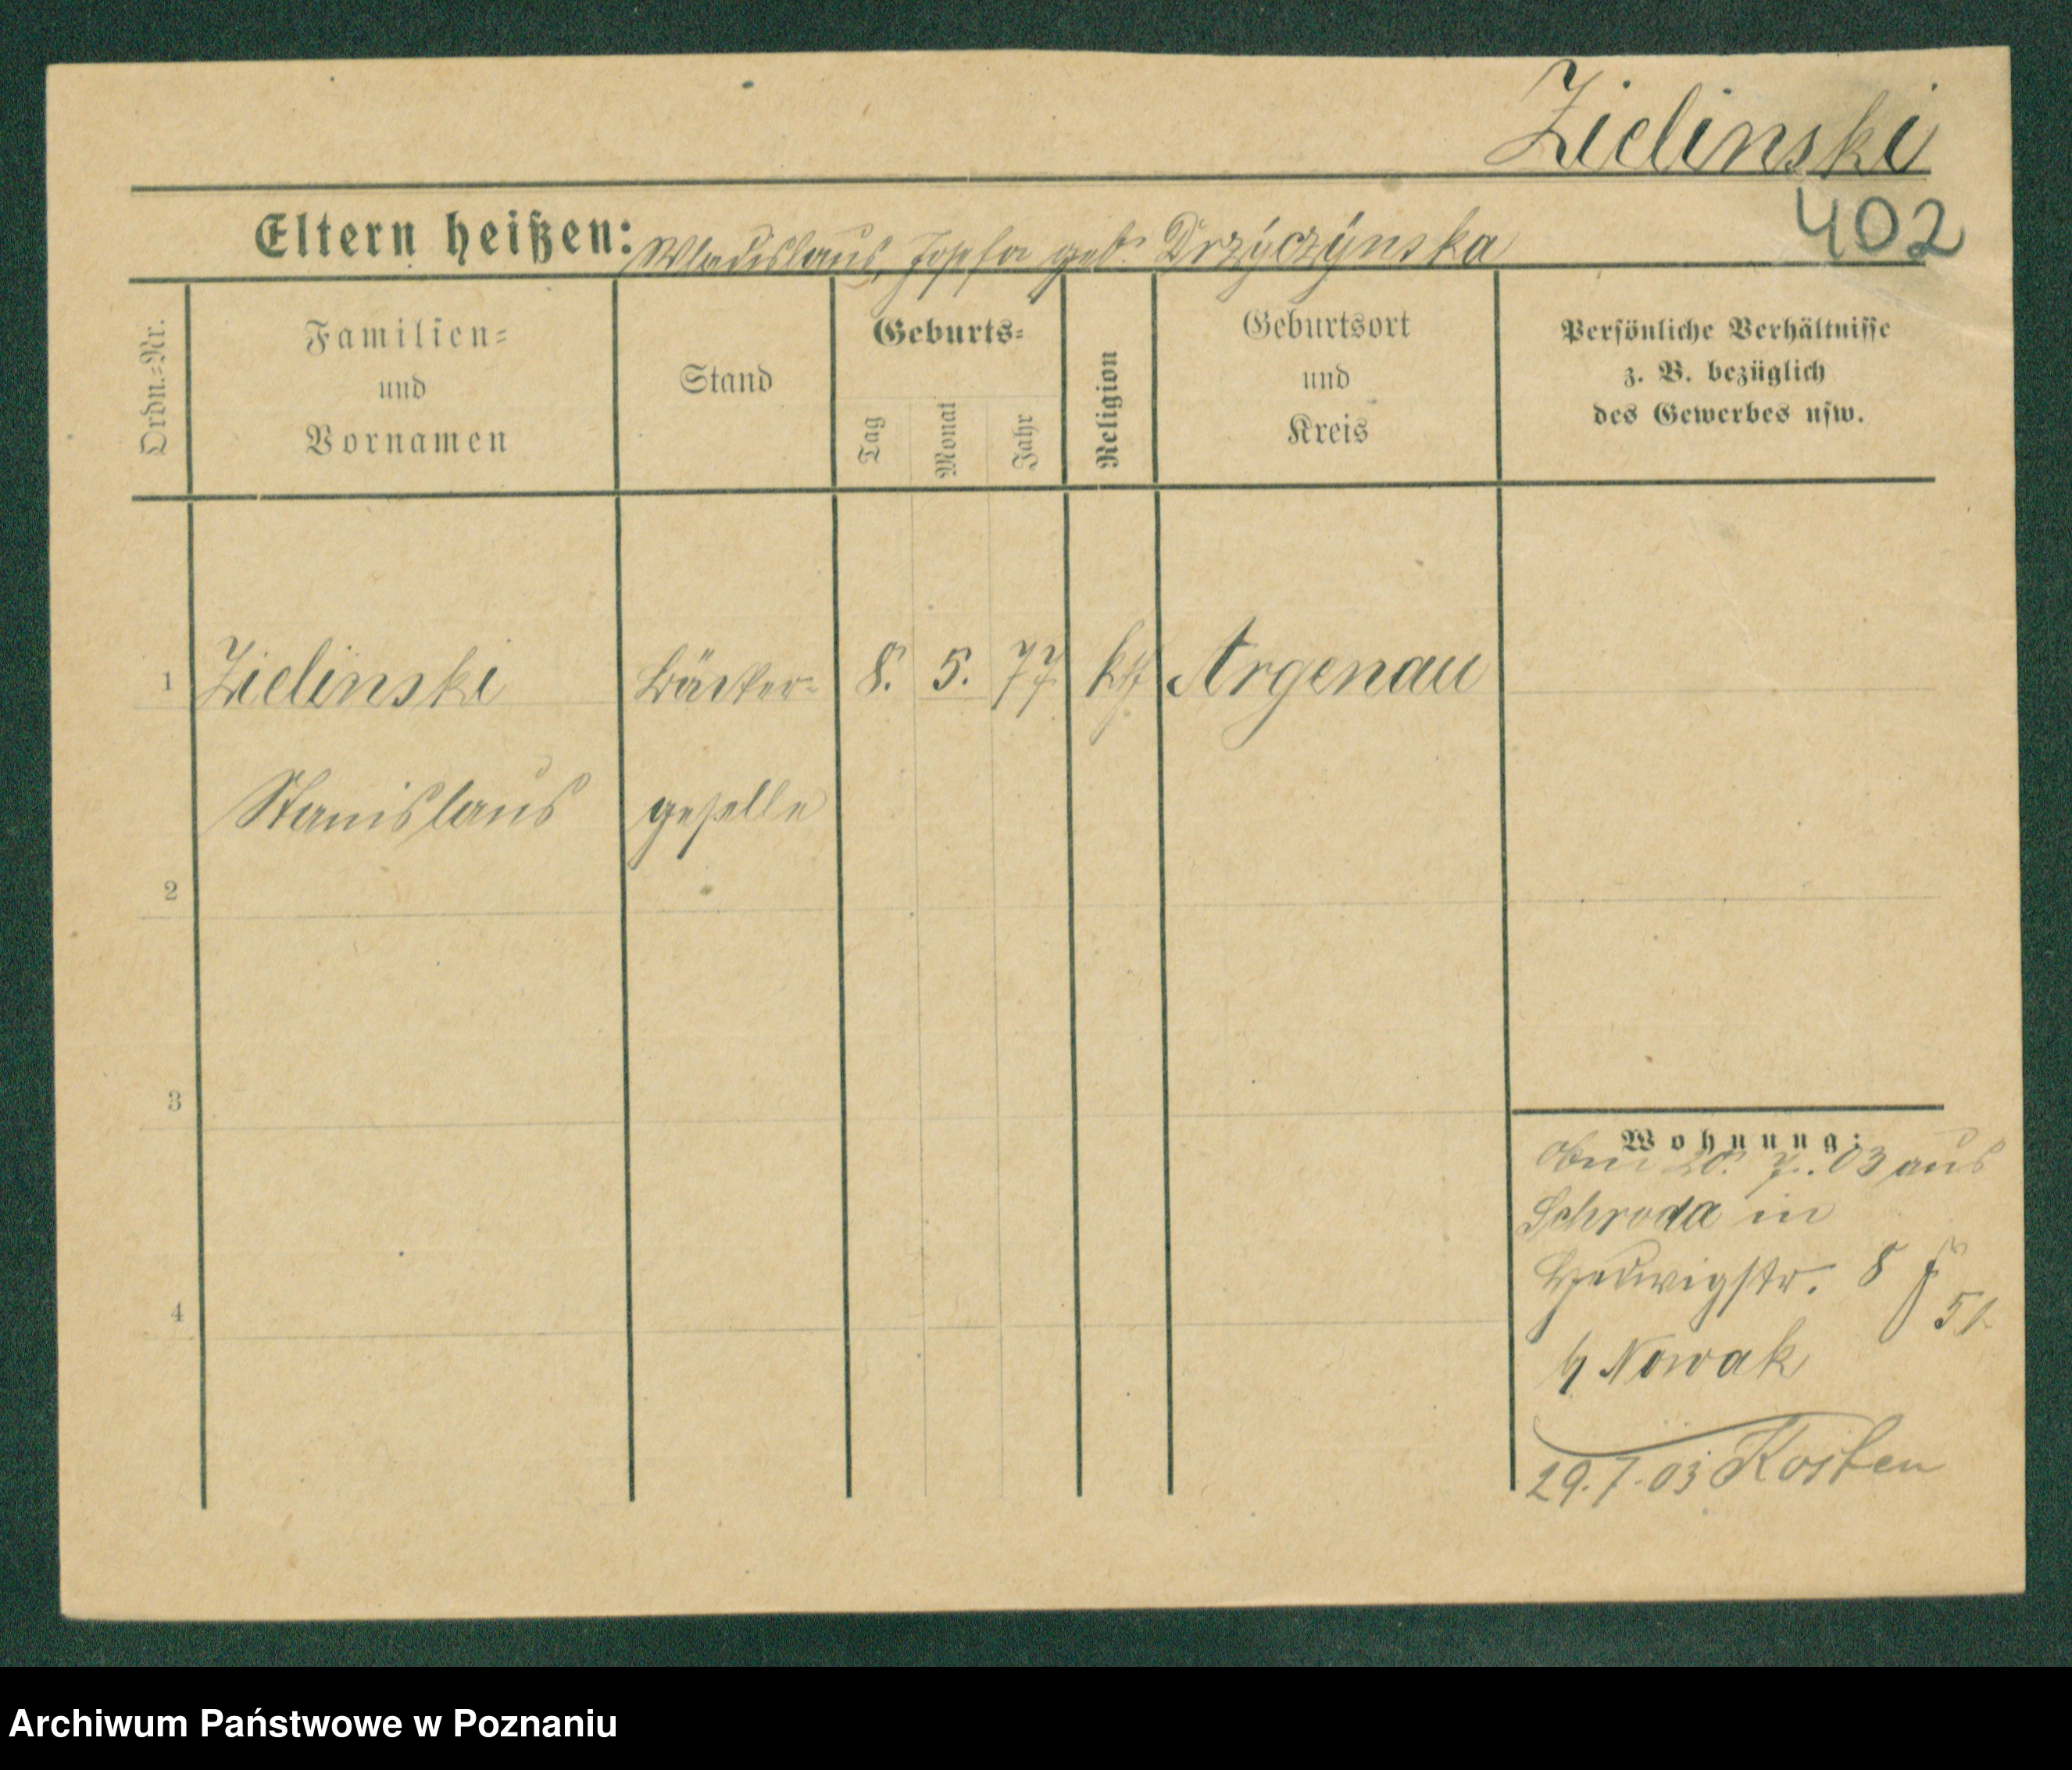 Zielinski
402
Eltern heißen: Wladislaus, Josefa geb. Drzÿczÿnska
Ordn.=Nr.
Familien=
und
Vornamen
Stand
Geburts=
Tag
Monat
Jahr
Religion
Geburtsort
und
Kreis
Persönliche Verhältnisse
z. B. bezüglich
des Gewerbes usw.
1 Zielinski Bäcker= 8. 5. 77 kth Argenau
Stanislaus geselle
2
3
4
Wohnung:
20. 7. 03 aus
Schroda in
Hedwigstr. 8
51
b/ Nowak
29.7.03 Kosten
Archiwum Państwowe w Poznaniu